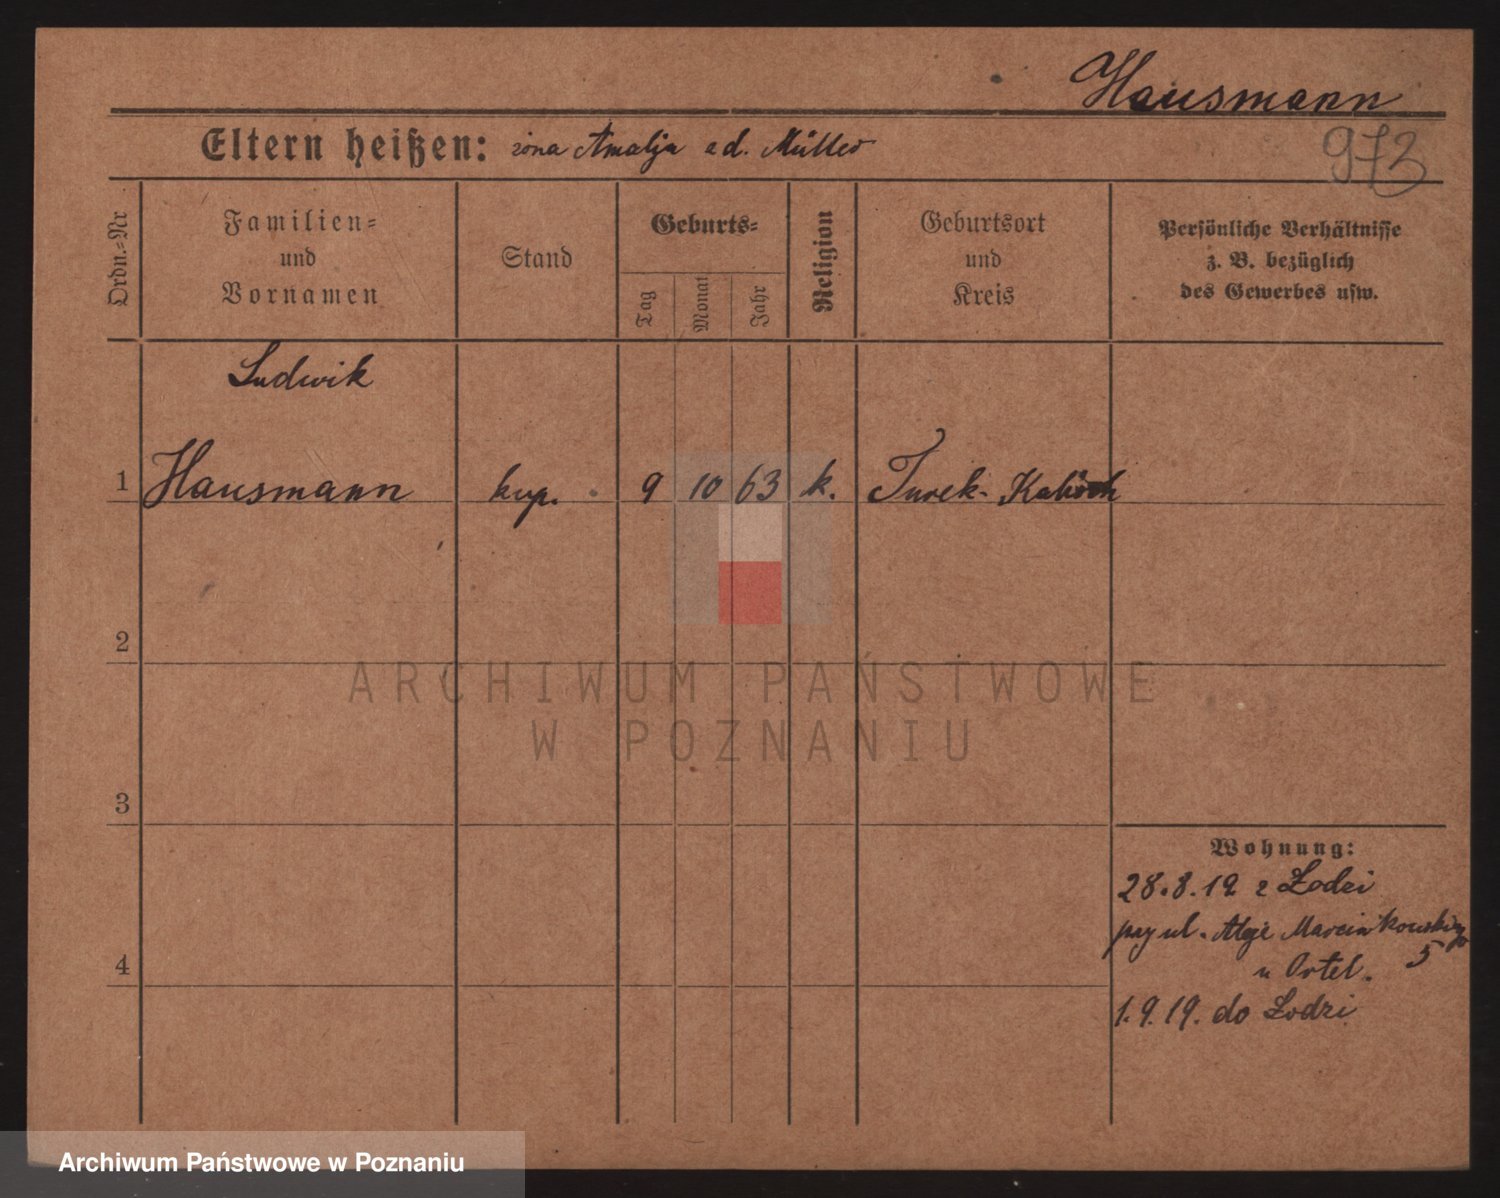 Hausmann
973
Eltern heißen: żona Amalja z d. Müller
Ordn.=Nr
Familien=
und
Vornamen
Stand
Geburts=
Tag
Monat
Jahr
Religion
Geburtsort
und
Kreis
Persönliche Verhältnisse
z. B. bezüglich
des Gewerbes usw.
Ludwik
1 Hausmann kup. 9 10 63 k. Turek-
2
3
4
Wohnung:
28.8.19 z Łodzi
przy ul. Aleje Marcinkowskiego
5
u Ortel.
1.9.19. do Łodzi
ARCHIWUM PAŃSTWOWE
W POZNANIU
Archiwum Państwowe w Poznaniu